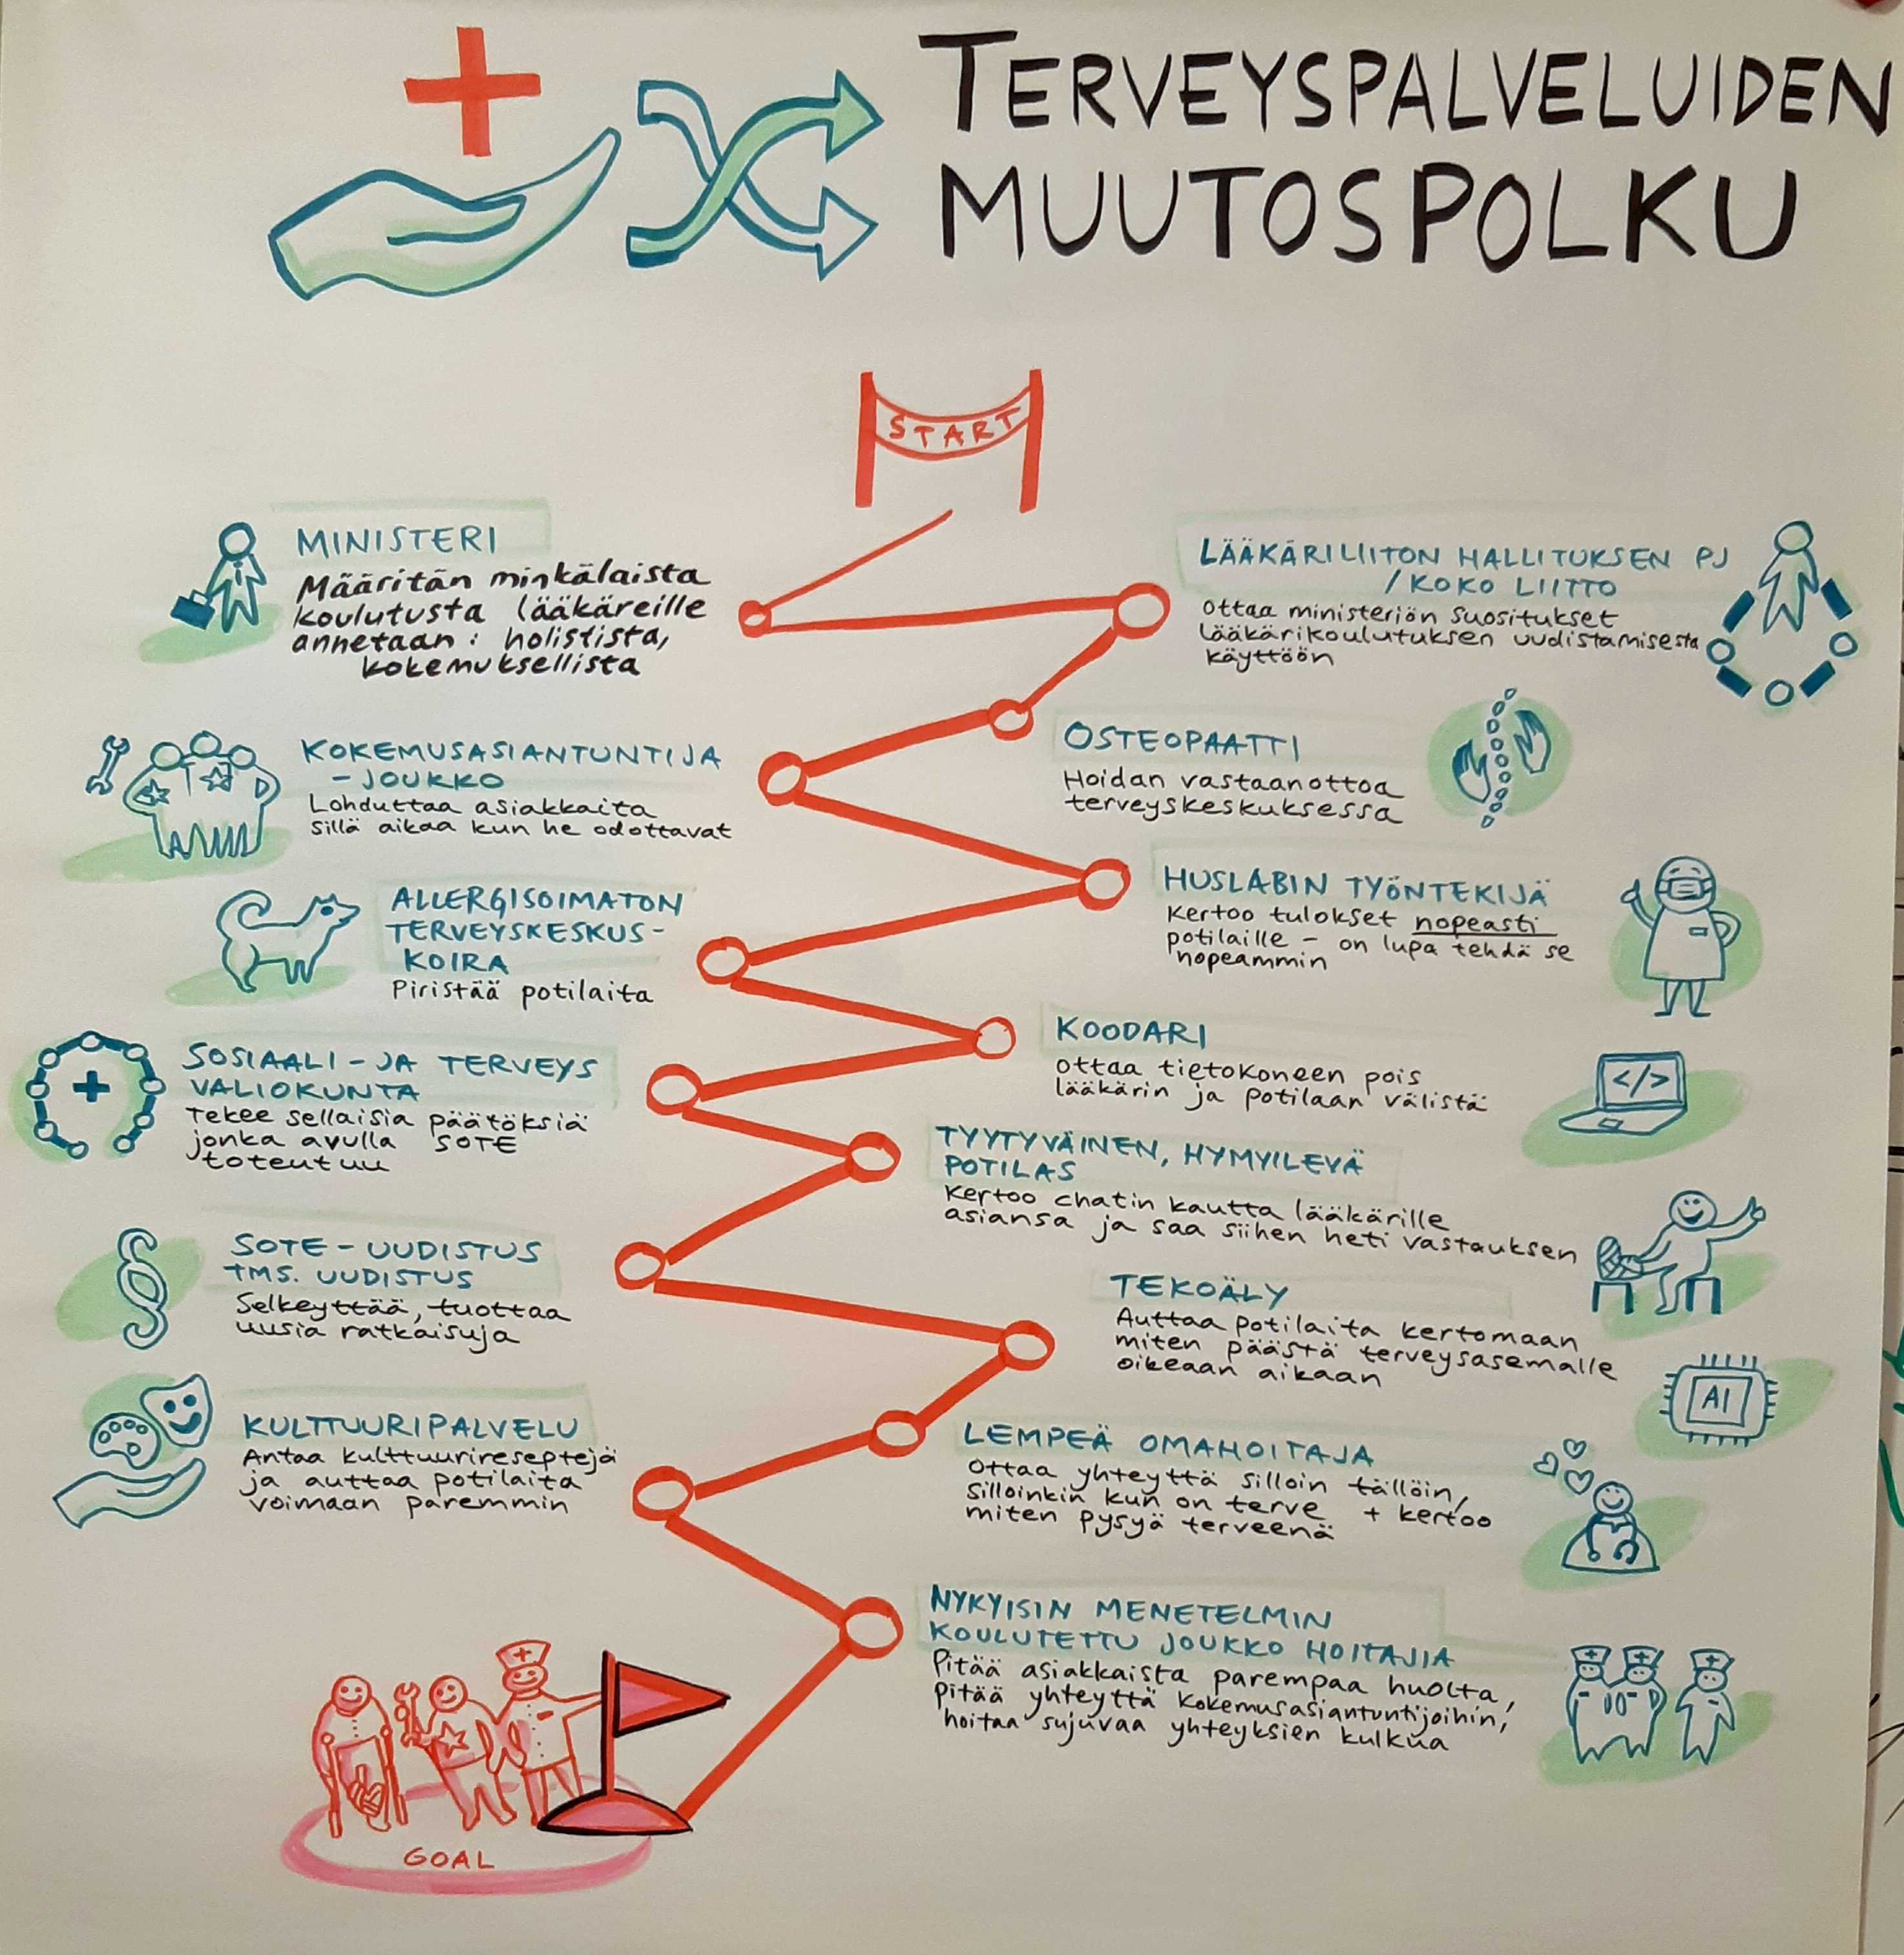 TERVEYSPALVELUIDEN
MUUTOSPOLKU
START
MINISTERI
Määritän minkälaista
koulutusta lääkäreille
annetaan: holistista,
kokemuksellista
LÄÄKÄRILIITON HALLITUKSEN PJ
/KOKO LIITTO
Ottaa ministeriön suositukset
lääkärikoulutuksen uudistamisesta
käyttöön
OSTEOPAATTI
Hoidan vastaanottoa
terveyskeskuksessa
KOKEMUSASIANTUNTIJA
-JOUKKO
Lohduttaa asiakkaita
sillä aikaa kun he odottavat
HUSLABIN TYÖNTEKIJÄ
Kertoo tulokset nopeasti
potilaille - on lupa tehdä se
nopeammin
ALLERGISOIMATON
TERVEYSKESKUS-
KOIRA
Piristää potilaita
KOODARI
Ottaa tietokoneen pois
lääkärin ja potilaan välistä
</>
SOSIAALI-JA TERVEYS
VALIOKUNTA
Tekee sellaisia päätöksiä
jonka avulla SOTE
toteutuu
TYYTYVÄINEN, HYMYILEVÄ
POTILAS
Kertoo chatin kautta lääkärille
asiansa ja saa siihen heti vastauksen
SOTE-UUDISTUS
TMS. UUDISTUS
Selkeyttää, tuottaa
uusia ratkaisuja
TEKOÄLY
Auttaa potilaita kertomaan
miten päästä terveysasemalle
oikeaan aikaan
AI
LEMPEÄ OMAHOITAJA
Ottaa yhteyttä silloin tällöin,
silloinkin kun on terve + kertoo
miten pysyä terveenä
KULTTUURIPALVELU
Antaa kulttuurireseptejä
ja auttaa potilaita
voimaan paremmin
NYKYISIN MENETELMIN
KOULUTETTU JOUKKO HOITAJIA
Pitää asiakkaista parempaa huolta,
pitää yhteyttä kokemusasiantuntijoihin,
hoitaa sujuvaa yhteyksien kulkua
GOAL